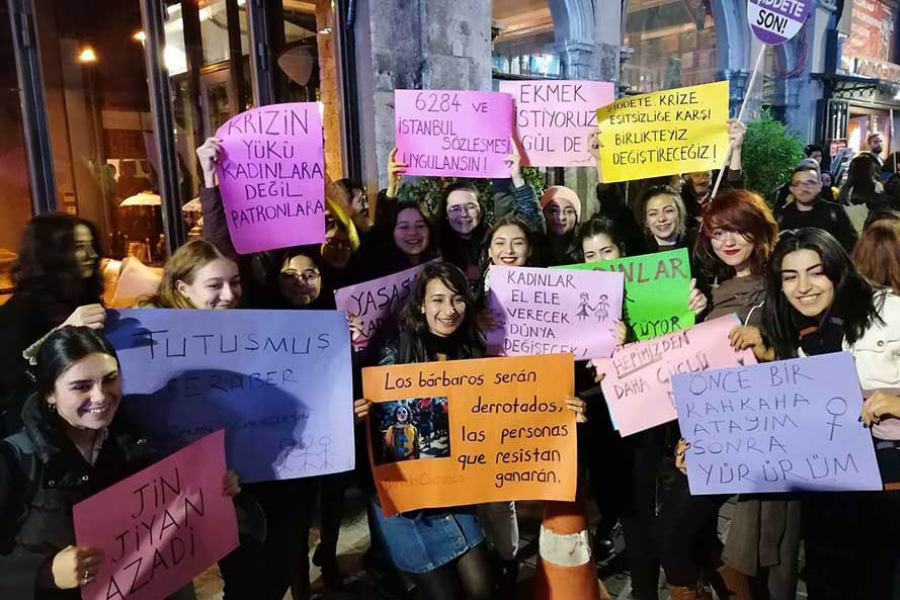 ŞİDDETE
SON!
KRİZİN
YÜKÜ
KADINLARA
DEĞİL
PATRONLARA
6284 VE
İSTANBUL
SÖZLEŞMESİ
UYGULANSIN!
EKMEK
İSTİYORUZ
GÜL DE
ŞİDDETE, KRİZE,
EŞİTSİZLİĞE KARŞI
BİRLİKTEYİZ
DEĞİŞTİRECEĞİZ!
YAŞASIN
KADINLAR
EL ELE
VERECEK
DÜNYA
DEĞİŞECEK!
TUTUŞMUŞ
BERABER
Los bárbaros serán
derrotados,
las personas
que resistan
ganarán.
HEPİMİZDEN
DAHA GÜÇLÜ
ÖNCE BİR
KAHKAHA
ATAYIM
SONRA
YÜRÜRÜM
JIN
JIYAN
AZADI